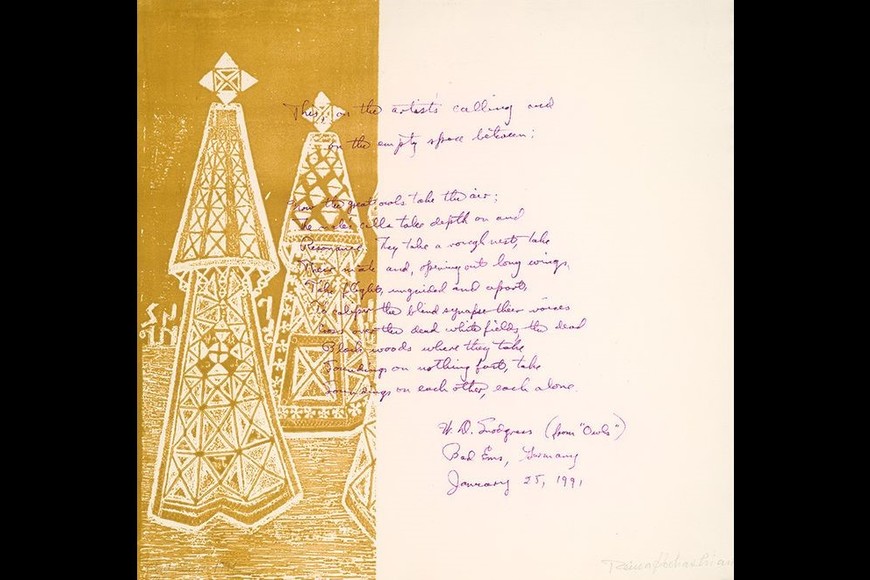 This, on the artist's calling and
on the empty space between:
Now the great owls take the air;
The male's calls take depth on and
Resonance; They take a rough nest, take
Their mate and, opening out long wings,
Take flight, unguided and apart
To caliper the blind synapse their voices
over the dead white fields the dead
Black woods where they take
Soundings on nothing fast, take
Soundings on each other, each alone.
W. D. Snodgrass (from "Owls")
Bad Ems, Germany
January 25, 1991